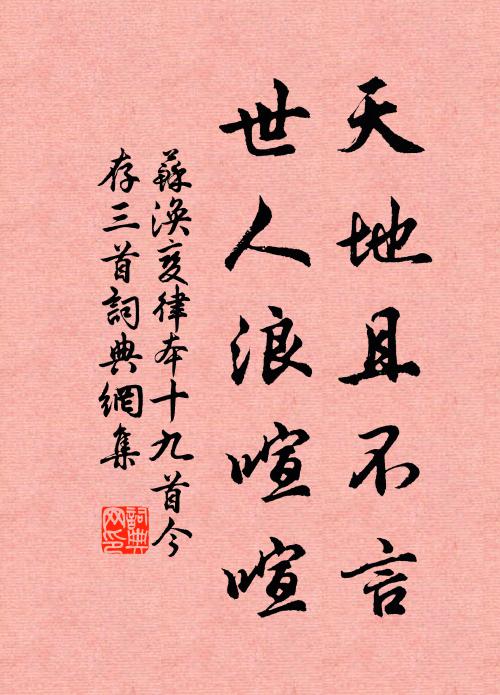 天地且不言
世人浪喧喧
蘇渙變律本十九首今
存三首詞典網集
詞典
网印